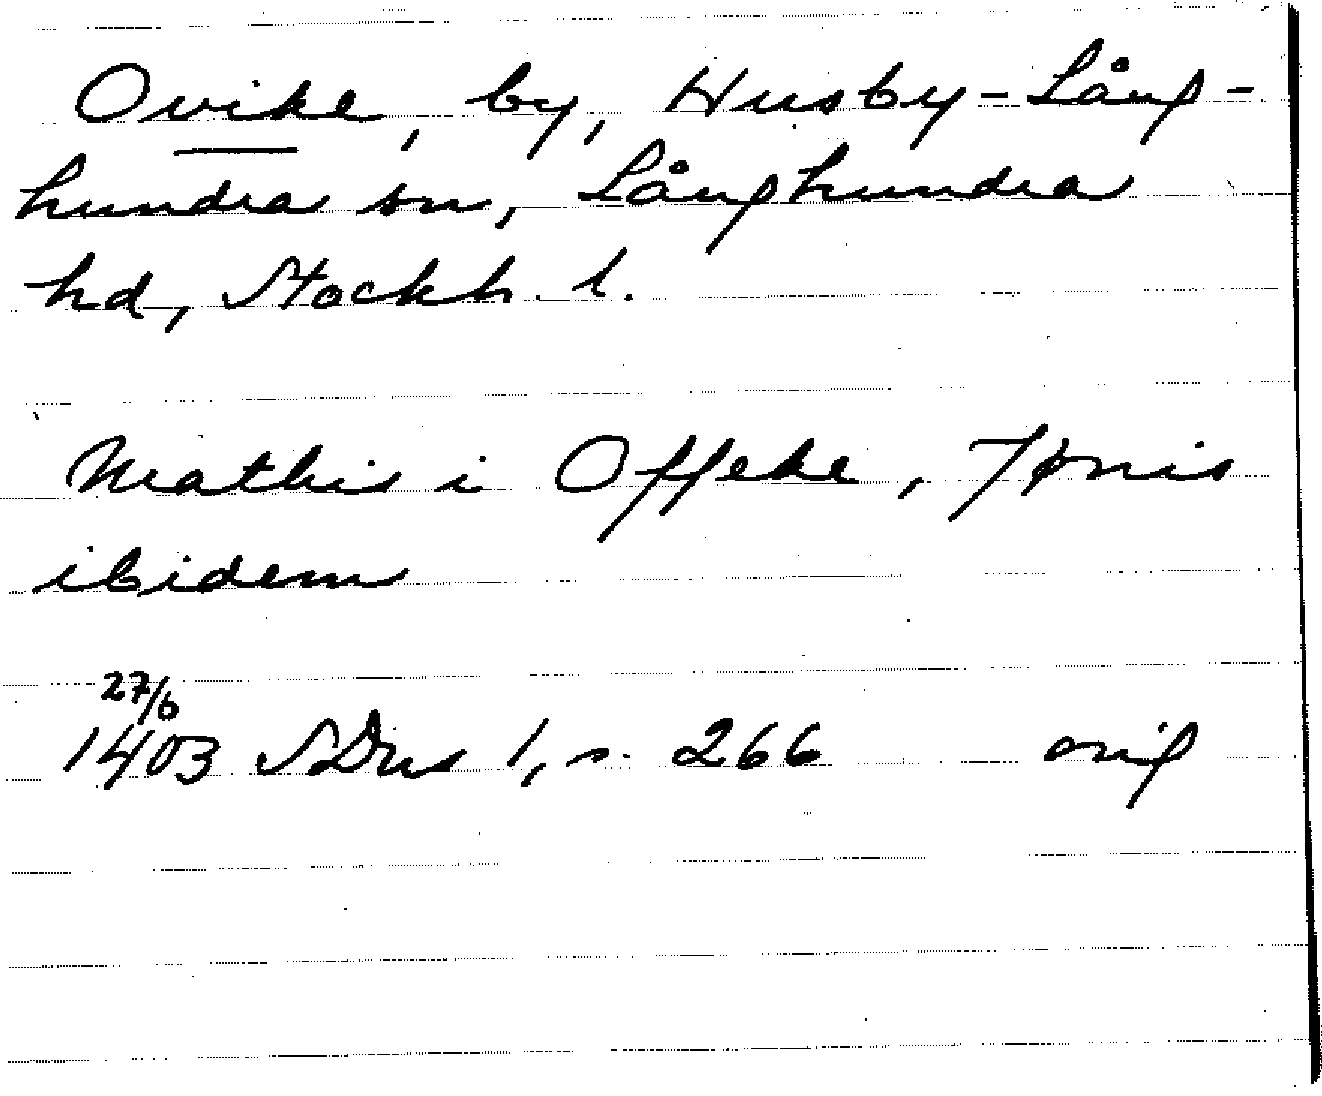 Ovike, by, Husby-Lång-
hundra sn, Långhundra
hd, Stockh. l.
Mathis i Offeke, Jønis
ibidem
27/6
1403 SDns 1, s. 266 orig